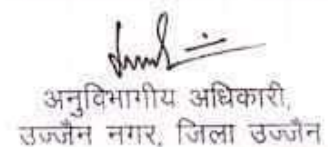 अनुविभागीय अधिकारी,
उज्जैन नगर, जिला उज्जैन